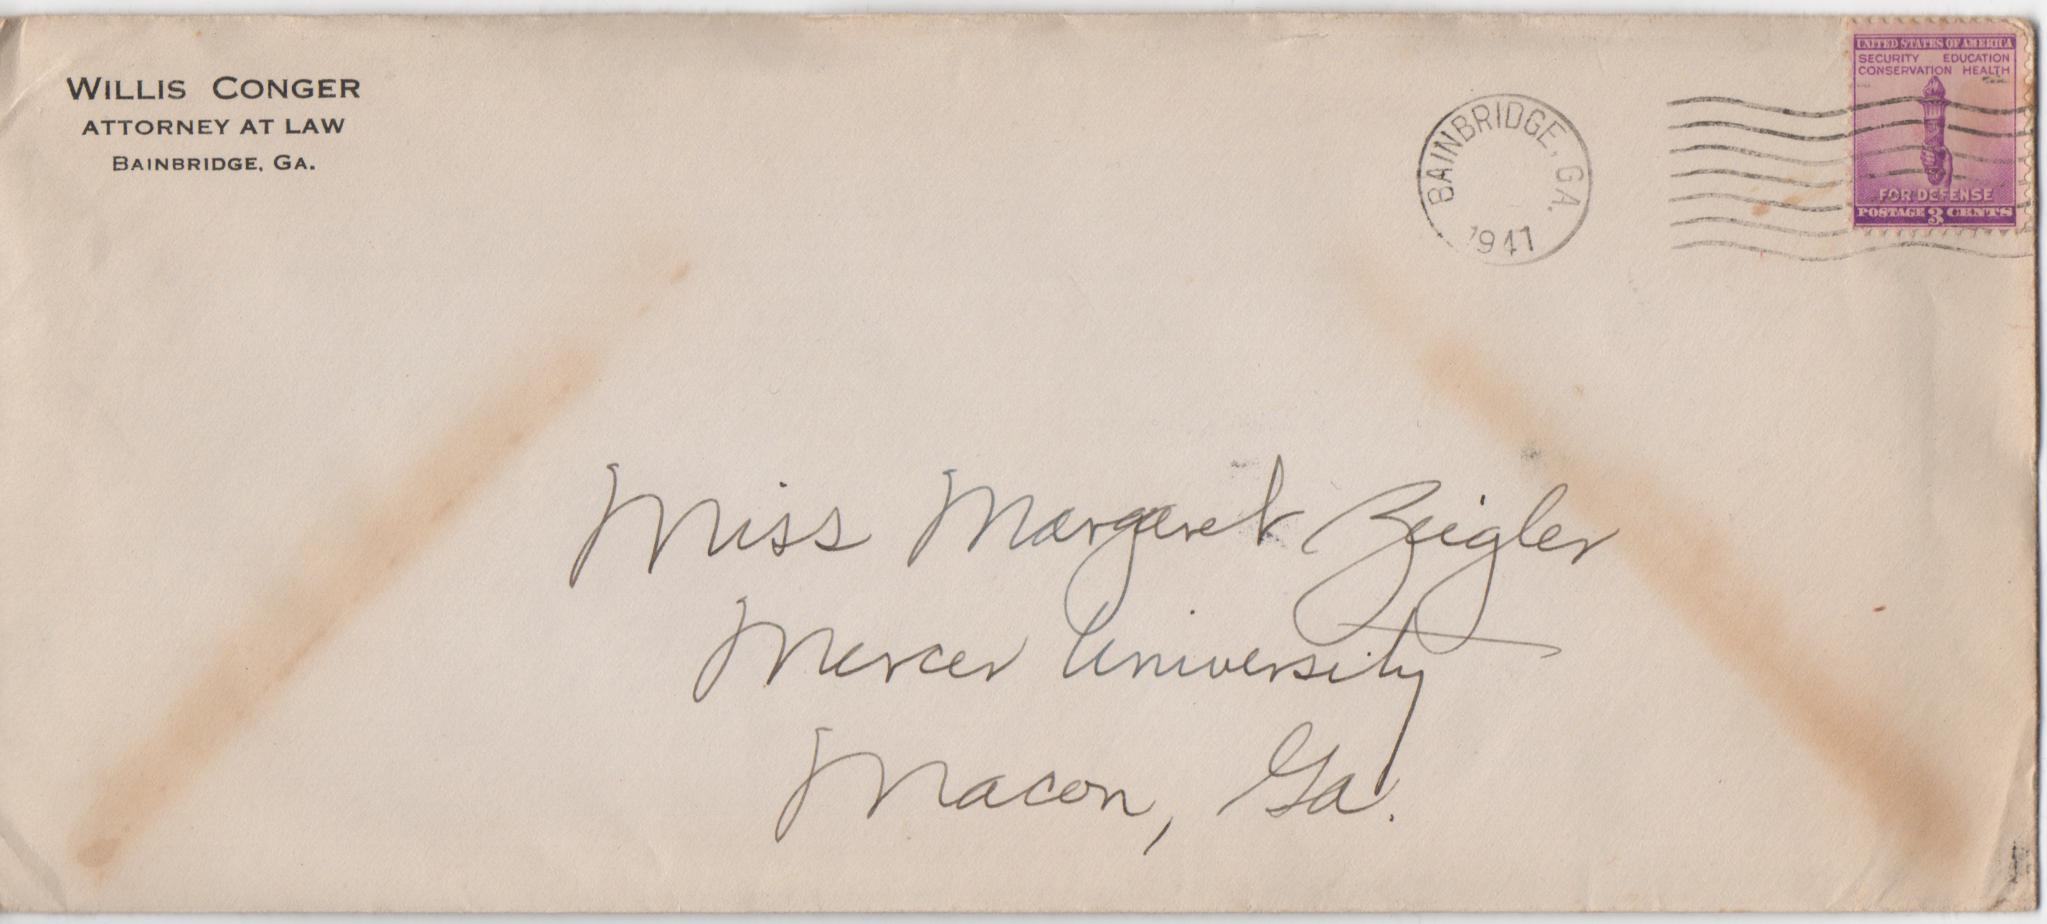 WILLIS CONGER
ATTORNEY AT LAW
BAINBRIDGE, GA.
BAINBRIDGE, GA.
1941
UNITED STATES OF AMERICA
SECURITY EDUCATION
CONSERVATION HEALTH
FOR DEFENSE
POSTAGE 3 CENTS
Miss Margaret Zeigler
Mercer University
Macon, Ga.